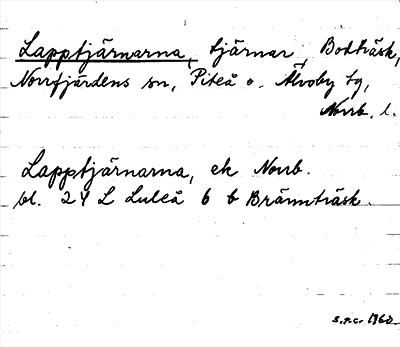 Lapptjärnarna, tjärnar, Bodträsk,
Norrfjärdens sn, Piteå o. Älvsby tg,
Norrb. l.
Lapptjärnarna, ek Norrb.
bl. 24 L Luleå 6 b Brännträsk.
s.r.c. 1960